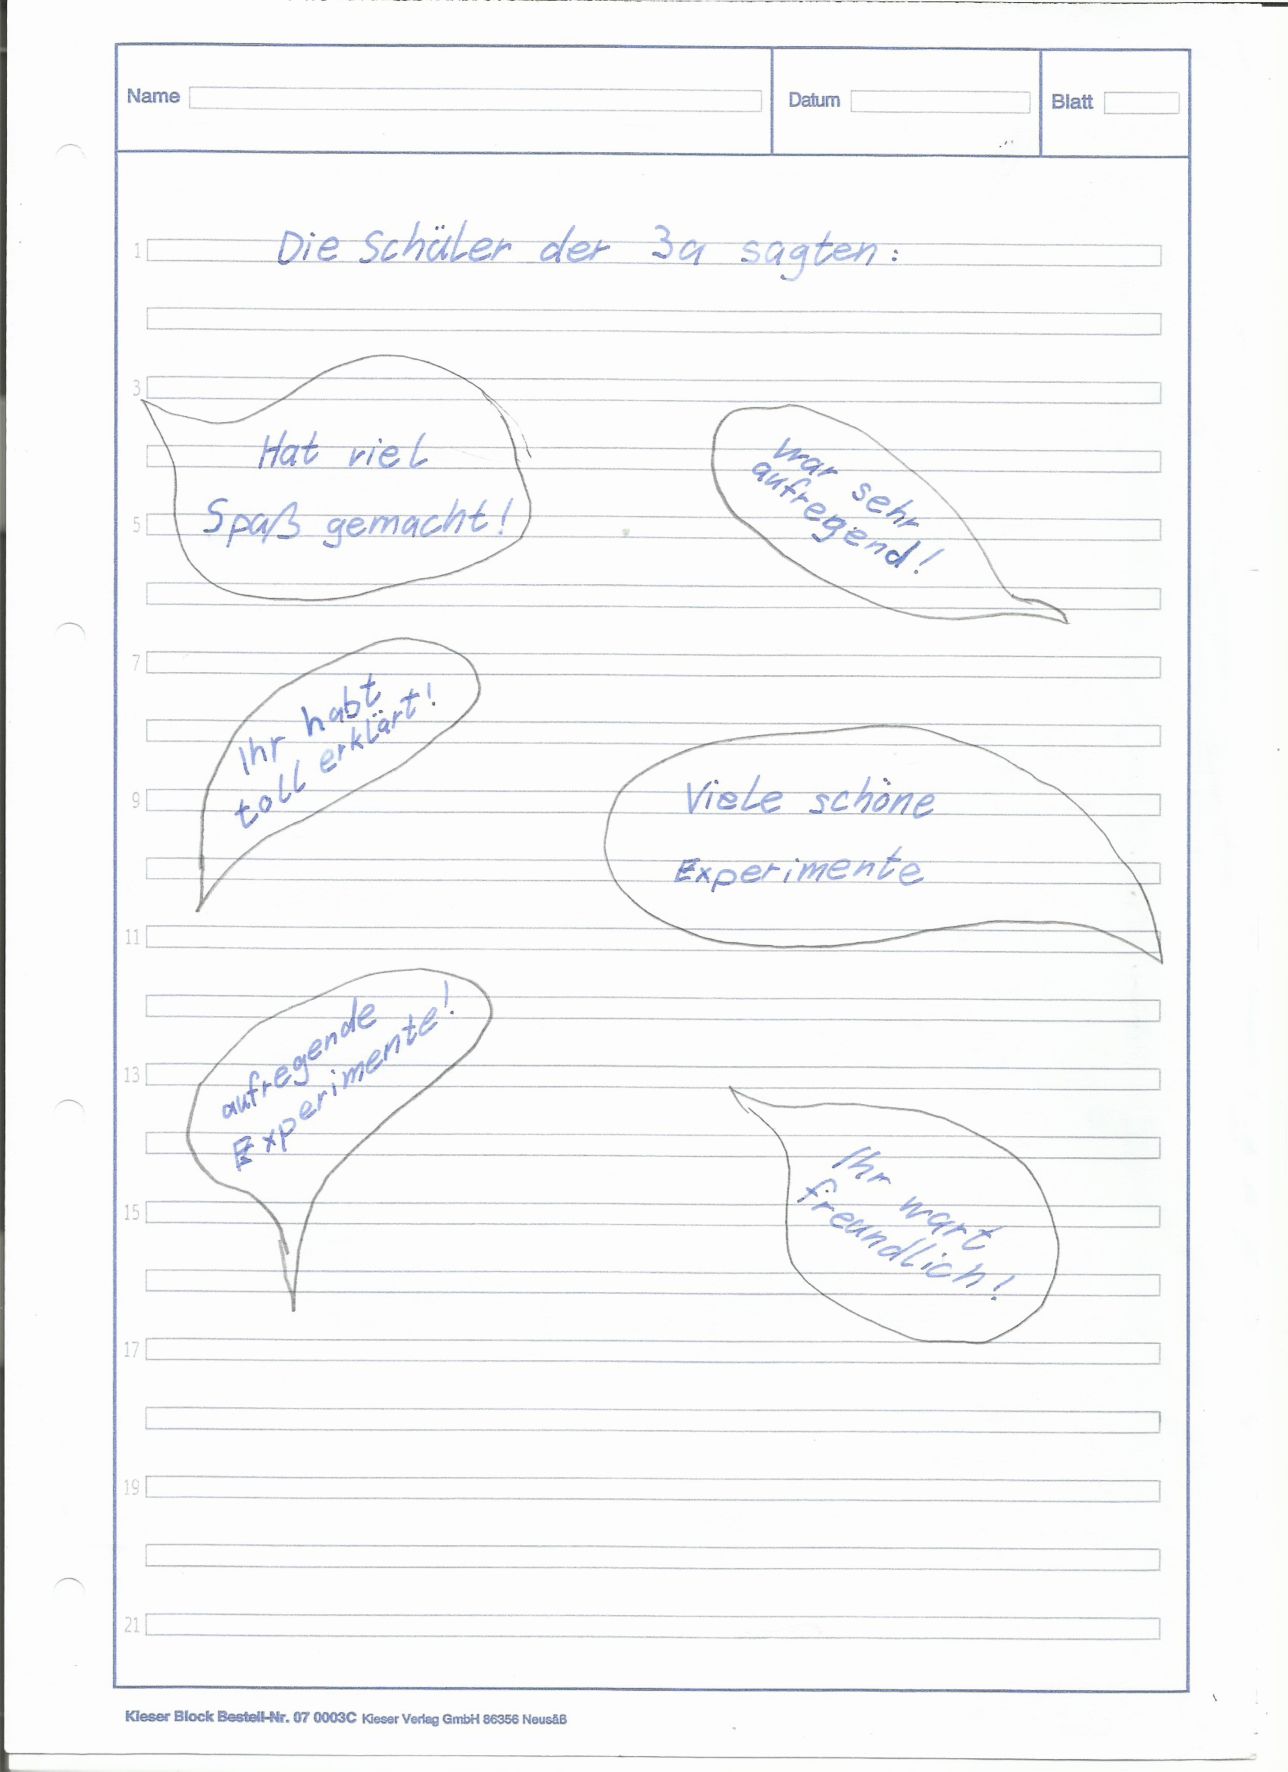 Name
Datum
Blatt
1
Die Schüler der 3a sagten:
3
Hat viel
5
Spaß gemacht!
war sehr
aufregend!
7
Ihr habt
toll erklärt!
9
Viele schöne
Experimente
11
aufregende
Experimente!
13
15
Ihr wart
freundlich!
17
19
21
Kieser Block Bestell-Nr. 07 0003C Kieser Verlag GmbH 86356 Neusäß